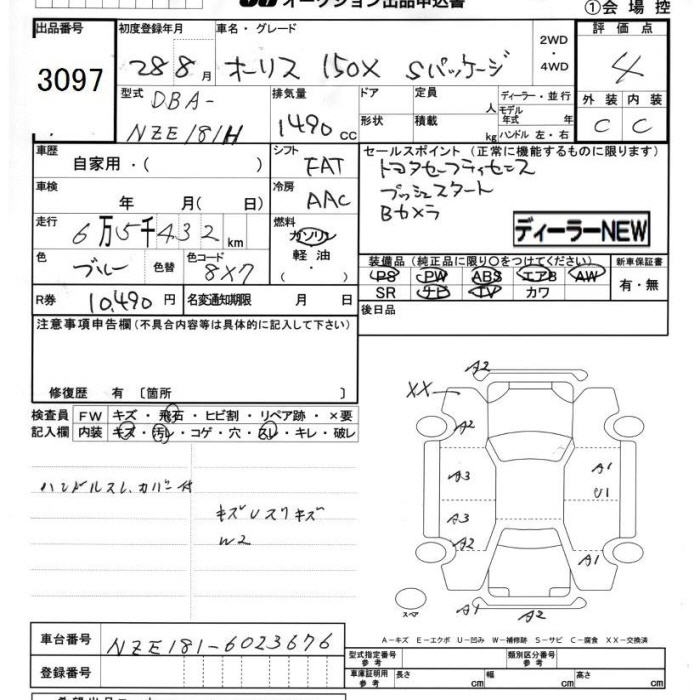 オークション出品申込書
①会場控
出品番号
3097
初度登録年月
28 8月
車名・グレード
オーリス 150X Sパッケージ
2WD・4WD
評価点
4
外装 内装
C C
型式
DBA-
NZE181H
排気量
1490 cc
ドア
形状
定員
人
積載
kg
ディーラー・並行
モデル
年式 年
ハンドル 左・右
車歴
自家用・( )
シフト
FAT
セールスポイント (正常に機能するものに限ります)
トヨタセーフティセンス
プッシュスタート
Bカメラ
ディーラーNEW
車検
年 月( 日)
冷房
AAC
走行
6万5千432km
燃料
ガソリン
軽油
・( )
色
ブルー
色替
色コード
8X7
装備品(純正品に限り○をつけてください)
PS PW ABS エアB AW
SR ナビ TV カワ
新車保証書
有・無
R券 10,490円
名変通知期限 月 日
後日品
注意事項申告欄(不具合内容等は具体的に記入して下さい)
修復歴 有〔箇所 〕
検査員 FW キズ・飛石・ヒビ割・リペア跡・×要
記入欄 内装 キズ・汚レ・コゲ・穴・スレ・キレ・破レ
ハンドルスレ、カバー付
キズUスリキズ
W2
A2
XX
A2
A3
A1
U1
A3
A2
A1
スペア
A1
A2
A-キズ E-エクボ U-凹み W-補修跡 S-サビ C-腐食 XX-交換済
車台番号 NZE181-6023676
登録番号
型式指定番号
参考
類別区分番号
参考
車庫証明用
参考
長さ cm
幅 cm
高さ cm